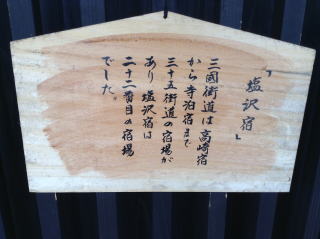 「塩沢宿」
三國街道は高崎宿
から寺泊宿まで
三十五街道の宿場が
あり塩沢宿は
二十二番目の宿場
でした。